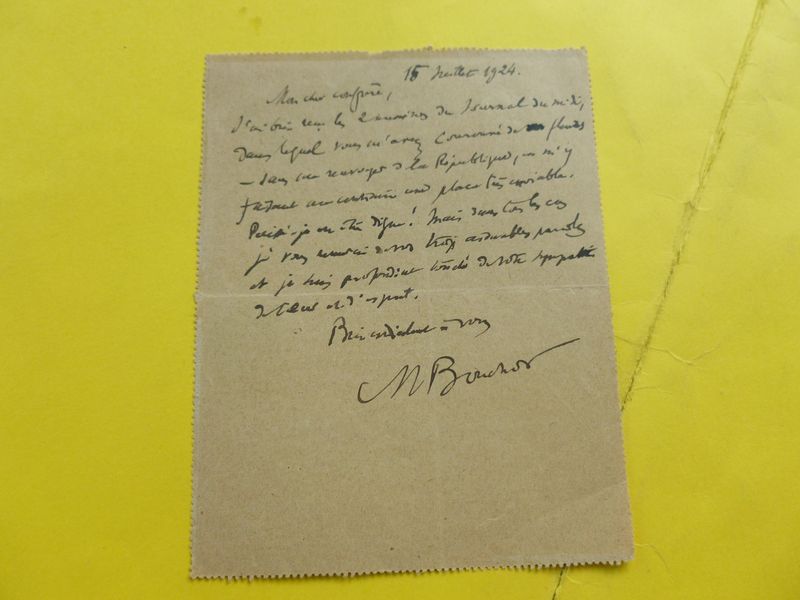 15 Juillet 1924.
Mon cher confrère,
J'ai bien reçu les 2 numéros du Journal du midi,
dans lequel vous m'avez couronné de fleurs
– sans me renvoyer de la République, en m'y
faisant au contraire une place très enviable.
Puissé-je en être digne! Mais dans tous les cas
je vous remercie de vos trop aimables paroles
et je suis profondément touché de votre sympathie
de cœur et d'esprit.
Bien cordialement à vous
M Bouchor